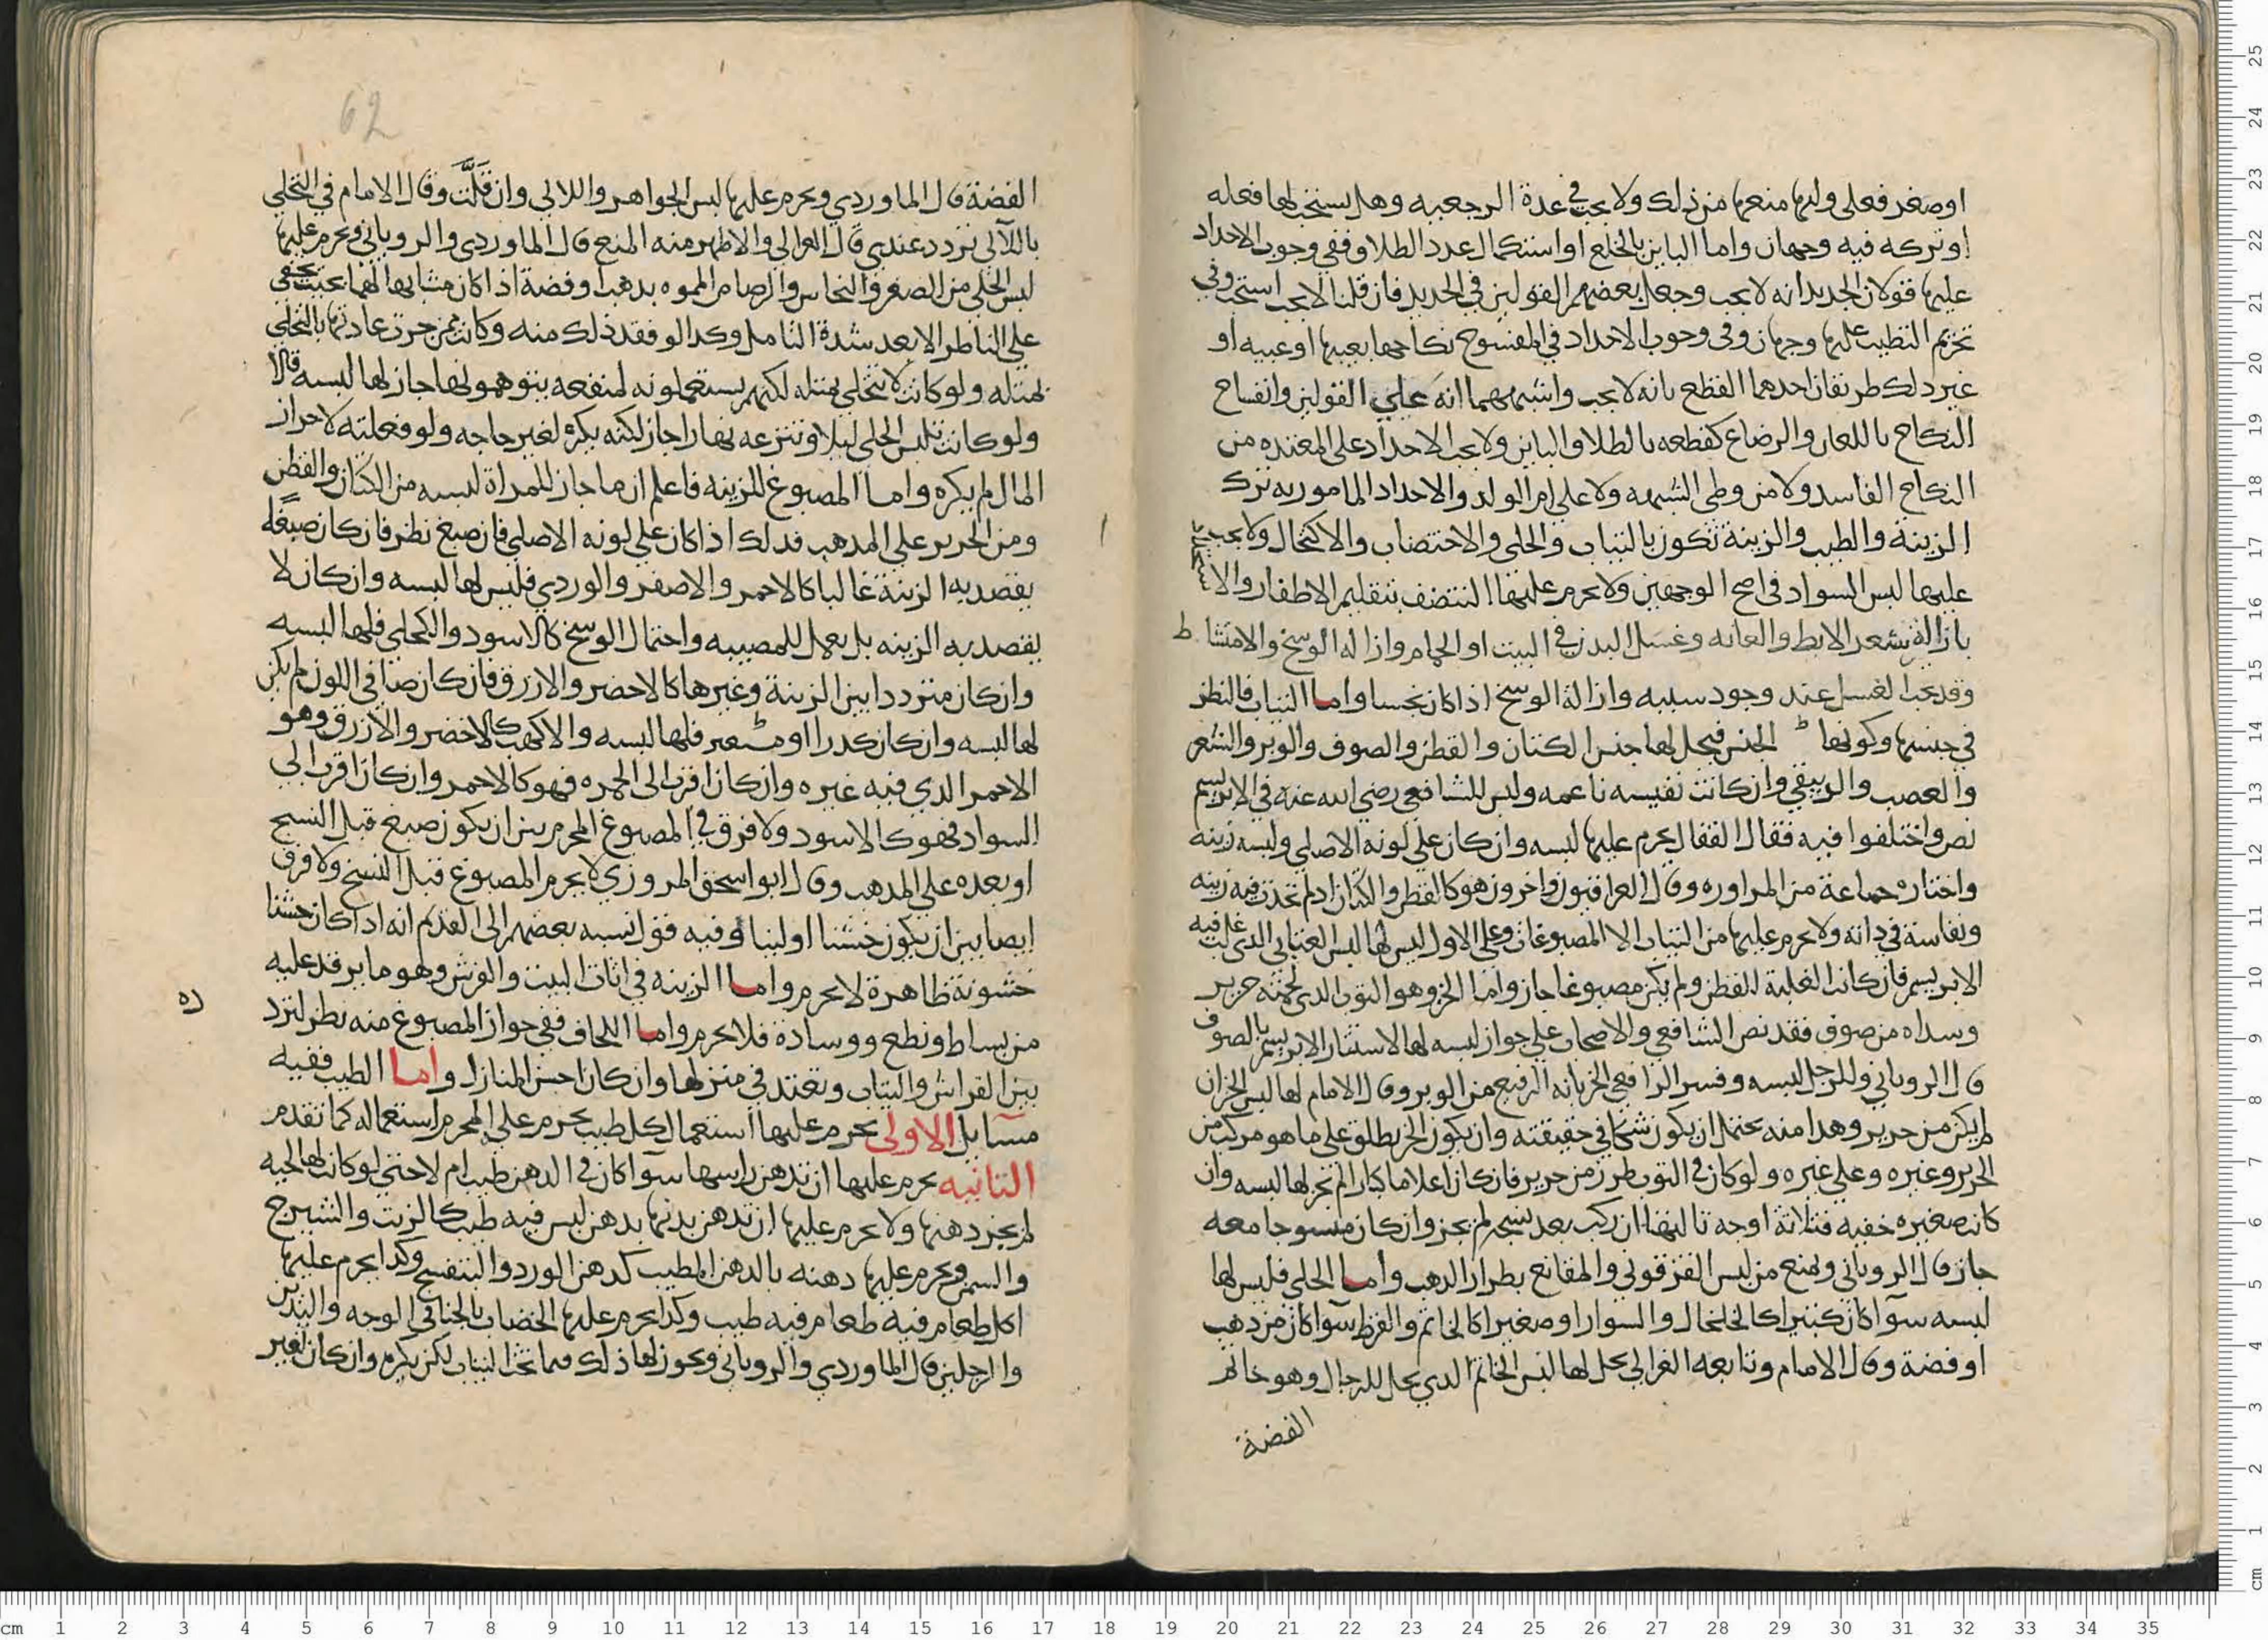 او صغر فعلى وليها منعها من ذلك ولا يجب في عدة الرجعيه وهل يستحب لها فعله
او تركه فيه وجهان واما الباين بالخلع او استكمال عدد الطلاق ففي وجوب الاحداد
عليها قولان الجديد انه لا يجب وجعل بعضهم القولين في الجديد فان قلنا لا يجب استحب وفي
تحريم التطيب عليها وجهان وفي وجوب الاحداد في المفسوخ نكاحها بعيبها او عيبه او
غير ذلك طريقان احدهما القطع بانه لا يجب واشبههما انه علي القولين وانفساخ
النكاح باللعان والرضاع كقطعه بالطلاق الباين ولا يجب الاحداد على المعتده من
النكاح الفاسد ولا من وطى الشبهه ولا على ام الولد والاحداد المامور به ترك
الزينة والطيب والزينة تكون بالثياب والحلي والاختضاب والاكتحال ولا يجب
عليها لبس السواد في اصح الوجهين ولا يحرم عليها التنضف بتقليم الاظفار والاستحداد
بازالة شعر الابط والعانه وغسل البدن في البيت او الحمام وازاله الوسخ والامتشاط
وقد يجب الغسل عند وجود سببه وازالة الوسخ اذا كان نجسا واما الثياب فالنظر
في جنسها وكونها ط الجنس فيحل لها جنس الكتان والقطن والصوف والوبر والشعر
والعصب والدبيقي وان كانت نفيسه ناعمه وليس للشافعي رضي الله عنه في الابريسم
نص واختلفوا فيه فقال القفال يحرم عليها لبسه وان كان على لونه الاصلي ولبسه زينه
واختاره جماعة من المراوره وقال العراقيون واخرون هو كالقطن والكتان اذ لم تحدث فيه زينه
ونفاسة في ذاته ولا يحرم عليها من الثياب الا المصبوغات وعلى الاول ليس لها لبس العتابي الذي غلب فيه
الابريسم فان كانت الغلبة للقطن ولم يكن مصبوغا جاز واما الخز وهو الثوب الذي لحمته حرير
وسداه من صوف فقد نص الشافعي والاصحاب على جواز لبسه لها لاستتار الابريسم بالصوف
قال الروياني وللرجل لبسه وفسر الرافعي الخز بانه الرفيع من الوبر وقال الامام لها لبس الخز ان
لم يكن من حرير وهذا منه يحتمل ان يكون شكا في حقيقته وان يكون الخز يطلق على ما هو مركب من
الحرير وغيره وعلى غيره ولو كان في الثوب طرز من حرير فان كان اعلاما كبارا لم يجز لها لبسه وان
كانت صغيره خفيه فثلاثة اوجه ثالثها ان ركب بعد نسجه لم يجز وان كان منسوجا معه
جاز قال الروياني وتمنع من لبس القزقوني والمقانع بطراز الذهب واما الحلي فليس لها
لبسه سوآ كان كبيرا كالخلخال والسوار او صغيرا كالخاتم والقرط سوآ كان من ذهب
او فضة وقال الامام وتابعه الغزالي يحل لها لبس الخاتم الذي يحل للرجال وهو خاتم
الفضة
62
الفضة قال الماوردي ويحرم عليها لبس الجواهر واللالي وان قلّت وقال الامام في التحلي
باللآلى تردد عندي قال الغزالي والاظهر منه المنع قال الماوردي والروياني ويحرم عليها
لبس الحلي من الصفر والنحاس والرصاص المموه بذهب او فضة اذا كان مشابها لهما بحيث يخفى
على الناظر الا بعد شدة التامل وكذا لو فقد ذلك منه وكانت ممن جرت عادتها بالتحلي
بمثله ولو كانت لا تتحلي بمثله لكنهم يستعملونه لمنفعه يتوهمونها جاز لها لبسه قالا
ولو كانت تلبس الحلي ليلا وتنزعه نهارا جاز لكنه يكره لغير حاجه ولو فعلته لاحراز
المال لم يكره واما المصبوغ للزينه فاعلم ان ما جاز للمراة لبسه من الكتان والقطن
ومن الحرير على المذهب فذلك اذا كان على لونه الاصلي فان صبغ نظر فان كان صبغا
يقصد به الزينة غالبا كالاحمر والاصفر والوردي فليس لها لبسه وان كان لا
يقصد به الزينه بل يعمل للمصيبه واحتمال الوسخ كالاسود والكحلي فلها لبسه
وان كان مترددا بين الزينة وغيرها كالاخضر والازرق فان كان صافي اللون لم يكن
لها لبسه وان كان كدرا او مشبعر فلها لبسه والاكهب كالاخضر والازرق وهو
الاحمر الذي فيه غبره وان كان اقرب الى الحمره فهو كالاحمر وان كان اقرب الى
السواد فهو كالاسود ولا فرق في المصبوغ المحرم بين ان يكون صبغ قبل النسج
او بعده على المذهب وقال ابو اسحق المروزي لا يحرم المصبوغ قبل النسج ولا فرق
ايضا بين ان يكون خشنا او لينا وفيه قول نسبه بعضهم الى القديم انه اذا كان خشنا
خشونة ظاهرة لا يحرم واما الزينه في اثاث البيت والفرش وهو ما يرقد عليه
من بساط ونطع ووسادة فلا يحرم واما اللحاف ففي جواز المصبوغ منه نظر لتردده
بين الفراش والثياب وتعتد في منزلها وان كان احسن المنازل واما الطيب ففيه
مسآيل الاولى يحرم عليها استعمال كل طيب يحرم على المحرم استعماله كما تقدم
الثانيه يحرم عليها ان تدهن راسها سوآ كان في الدهن طيب ام لا حتى لو كانت لها لحيه
لم يجز دهنها ولا يحرم عليها ان تدهن بدنها بدهن ليس فيه طيب كالزيت والشيرج
والسمن ويحرم عليها دهنه بالدهن المطيب كدهن الورد والبنفسج وكذا يحرم عليها
اكل طعام فيه طعام فيه طيب وكذا يحرم عليها الخضاب بالحنا في الوجه واليدين
والرجلين قال الماوردي والروياني ويجوز لها ذلك فيما تحت الثياب لكن يكره وان كان لغير